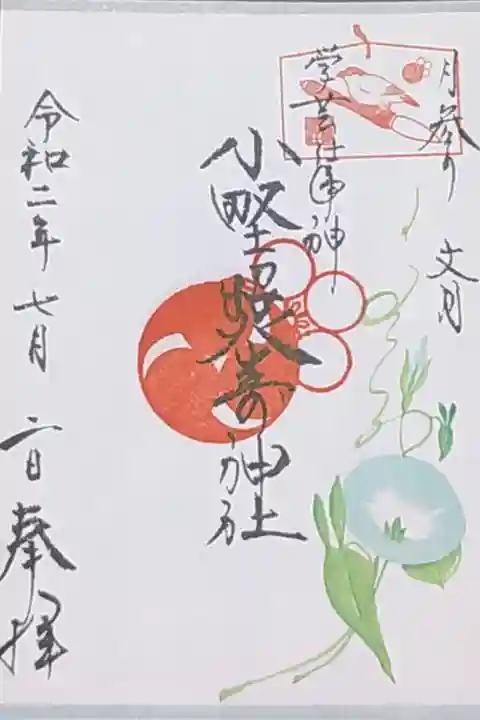 月参り 文月
学芸仕事神
小野照崎神社
令和二年七月
奉拝